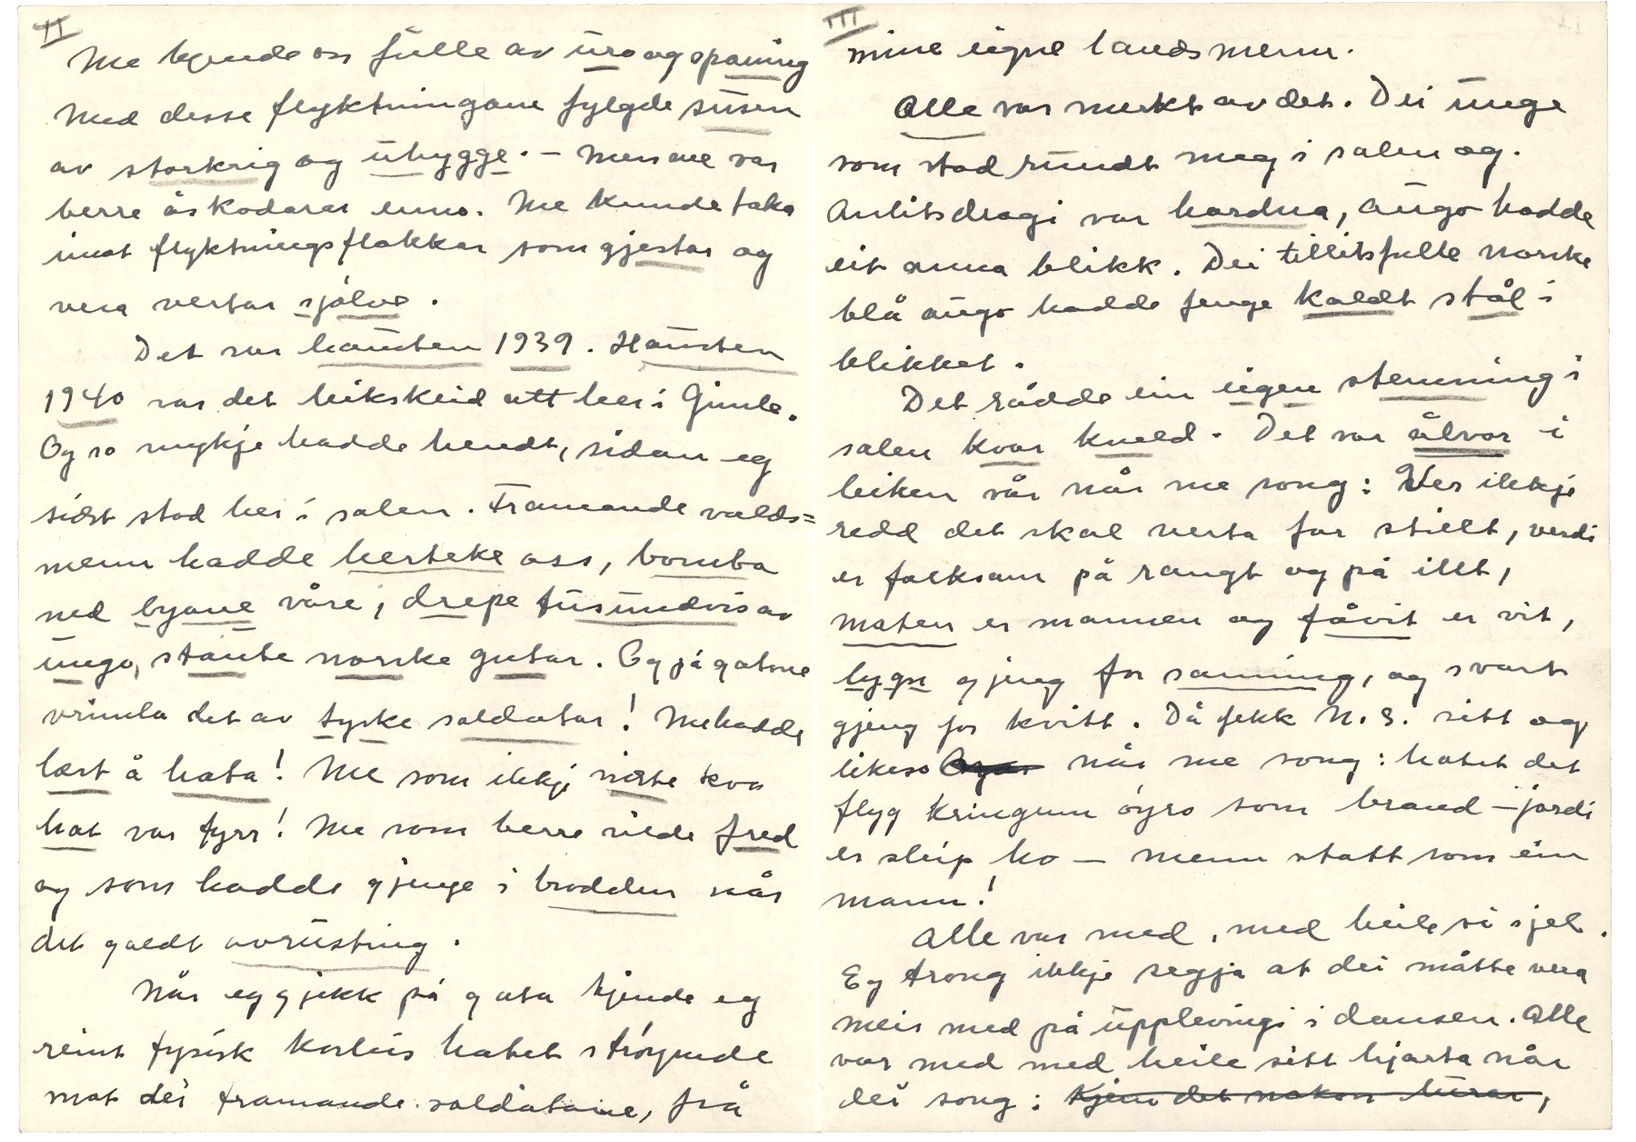 II
Me kjende oss fulle av uro og spaning
Med desse flyktningane fylgde susen
av storkrig og uhygge. – Men me var
berre åskodarar enno. Me kunde taka
imot flyktningsflokkar som gjestar og
vera vertar sjølve.
Det var hausten 1939. Hausten
1940 var det leikskeid att her i Gimle.
Og so mykje hadde hendt, sidan eg
sist stod her i salen. Framande valds=
menn hadde herteke oss, bomba
ned byane våre, drepe tusundvis av
unge, staute norske gutar. Og på gatone
vrimla det av tyske soldatar! Me hadde
lært å hata! Me som ikkje visste kva
hat var fyrr! Me som berre vilde fred
og som hadde gjenge i brodden når
det galdt avrusting.
Når eg gjekk på gata kjende eg
reint fysisk korleis hatet strøymde
mot dei framande soldatane, frå
III
mine eigne landsmenn.
Alle var merkt av det. Dei unge
som stod rundt meg i salen og.
Anlitsdragi var hardna, augo hadde
eit anna blikk. Dei tillitsfulle norske
blå augo hadde fenge kaldt stål i
blikket.
Det rådde ein eigen stemning i
salen kvar kveld. Det var ålvor i
leiken vår når me song: Ver ikkje
redd det skal verta for stillt, verdi
er folksam på rangt og på illt,
maten er mannen og fåvit er vit,
lygn gjeng for sanning, og svart
gjeng for kvitt. Då fekk N.S. sitt og
likeso når me song: hatet det
flyg kringum øyro som brand – jordi
er sleip ho – menn statt som ein
mann!
Alle var med, med heile si sjel.
Eg trong ikkje segja at dei måtte vera
meir med på upplevingi i dansen. Alle
var med med heile sitt hjarta når
dei song: Kjem det nokon lurar,